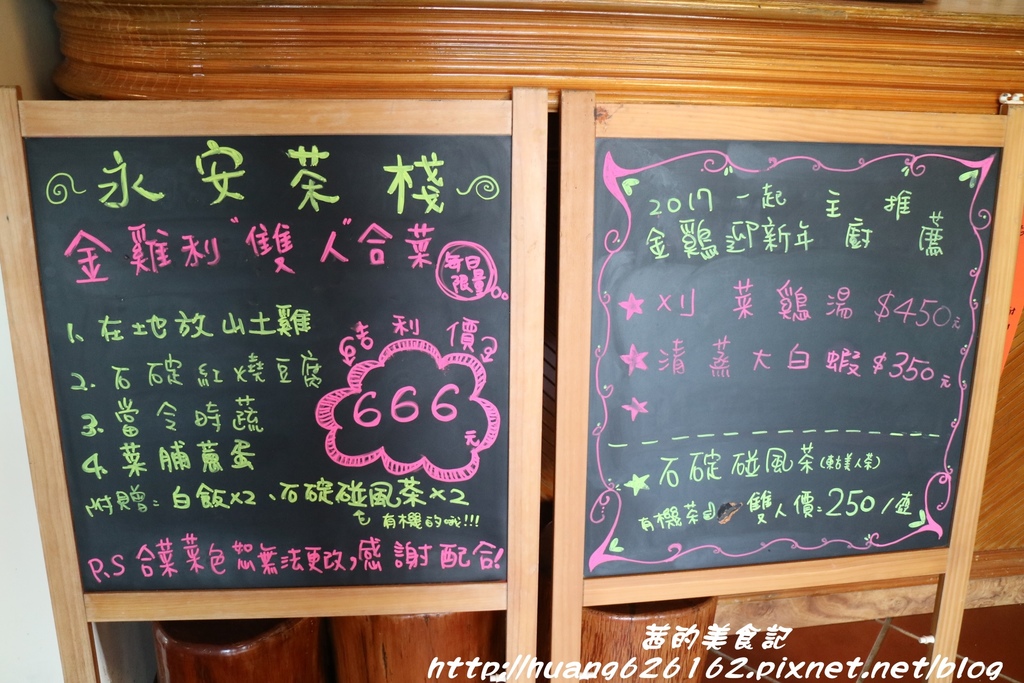 永安茶棧
金雞利"雙人"合菜
每日
限量
1. 在地放山土雞
2. 石碇紅燒豆腐
3. 當令時蔬
4. 菜脯蔥蛋
吉利價
666元
附贈:白飯x2、石碇碰風茶x2
有機的哦!!!
P.S 合菜菜色恕無法更改,感謝配合!
2017 一起 主 推
金鷄迎新年 廚 薦
★ 刈菜鷄湯 $450元
★ 清蒸大白蝦 $350元
★
★ 石碇碰風茶(東方美人茶)
有機茶 雙人價:250/壺
茜的美食記
http://huang626162.pixnet.net/blog